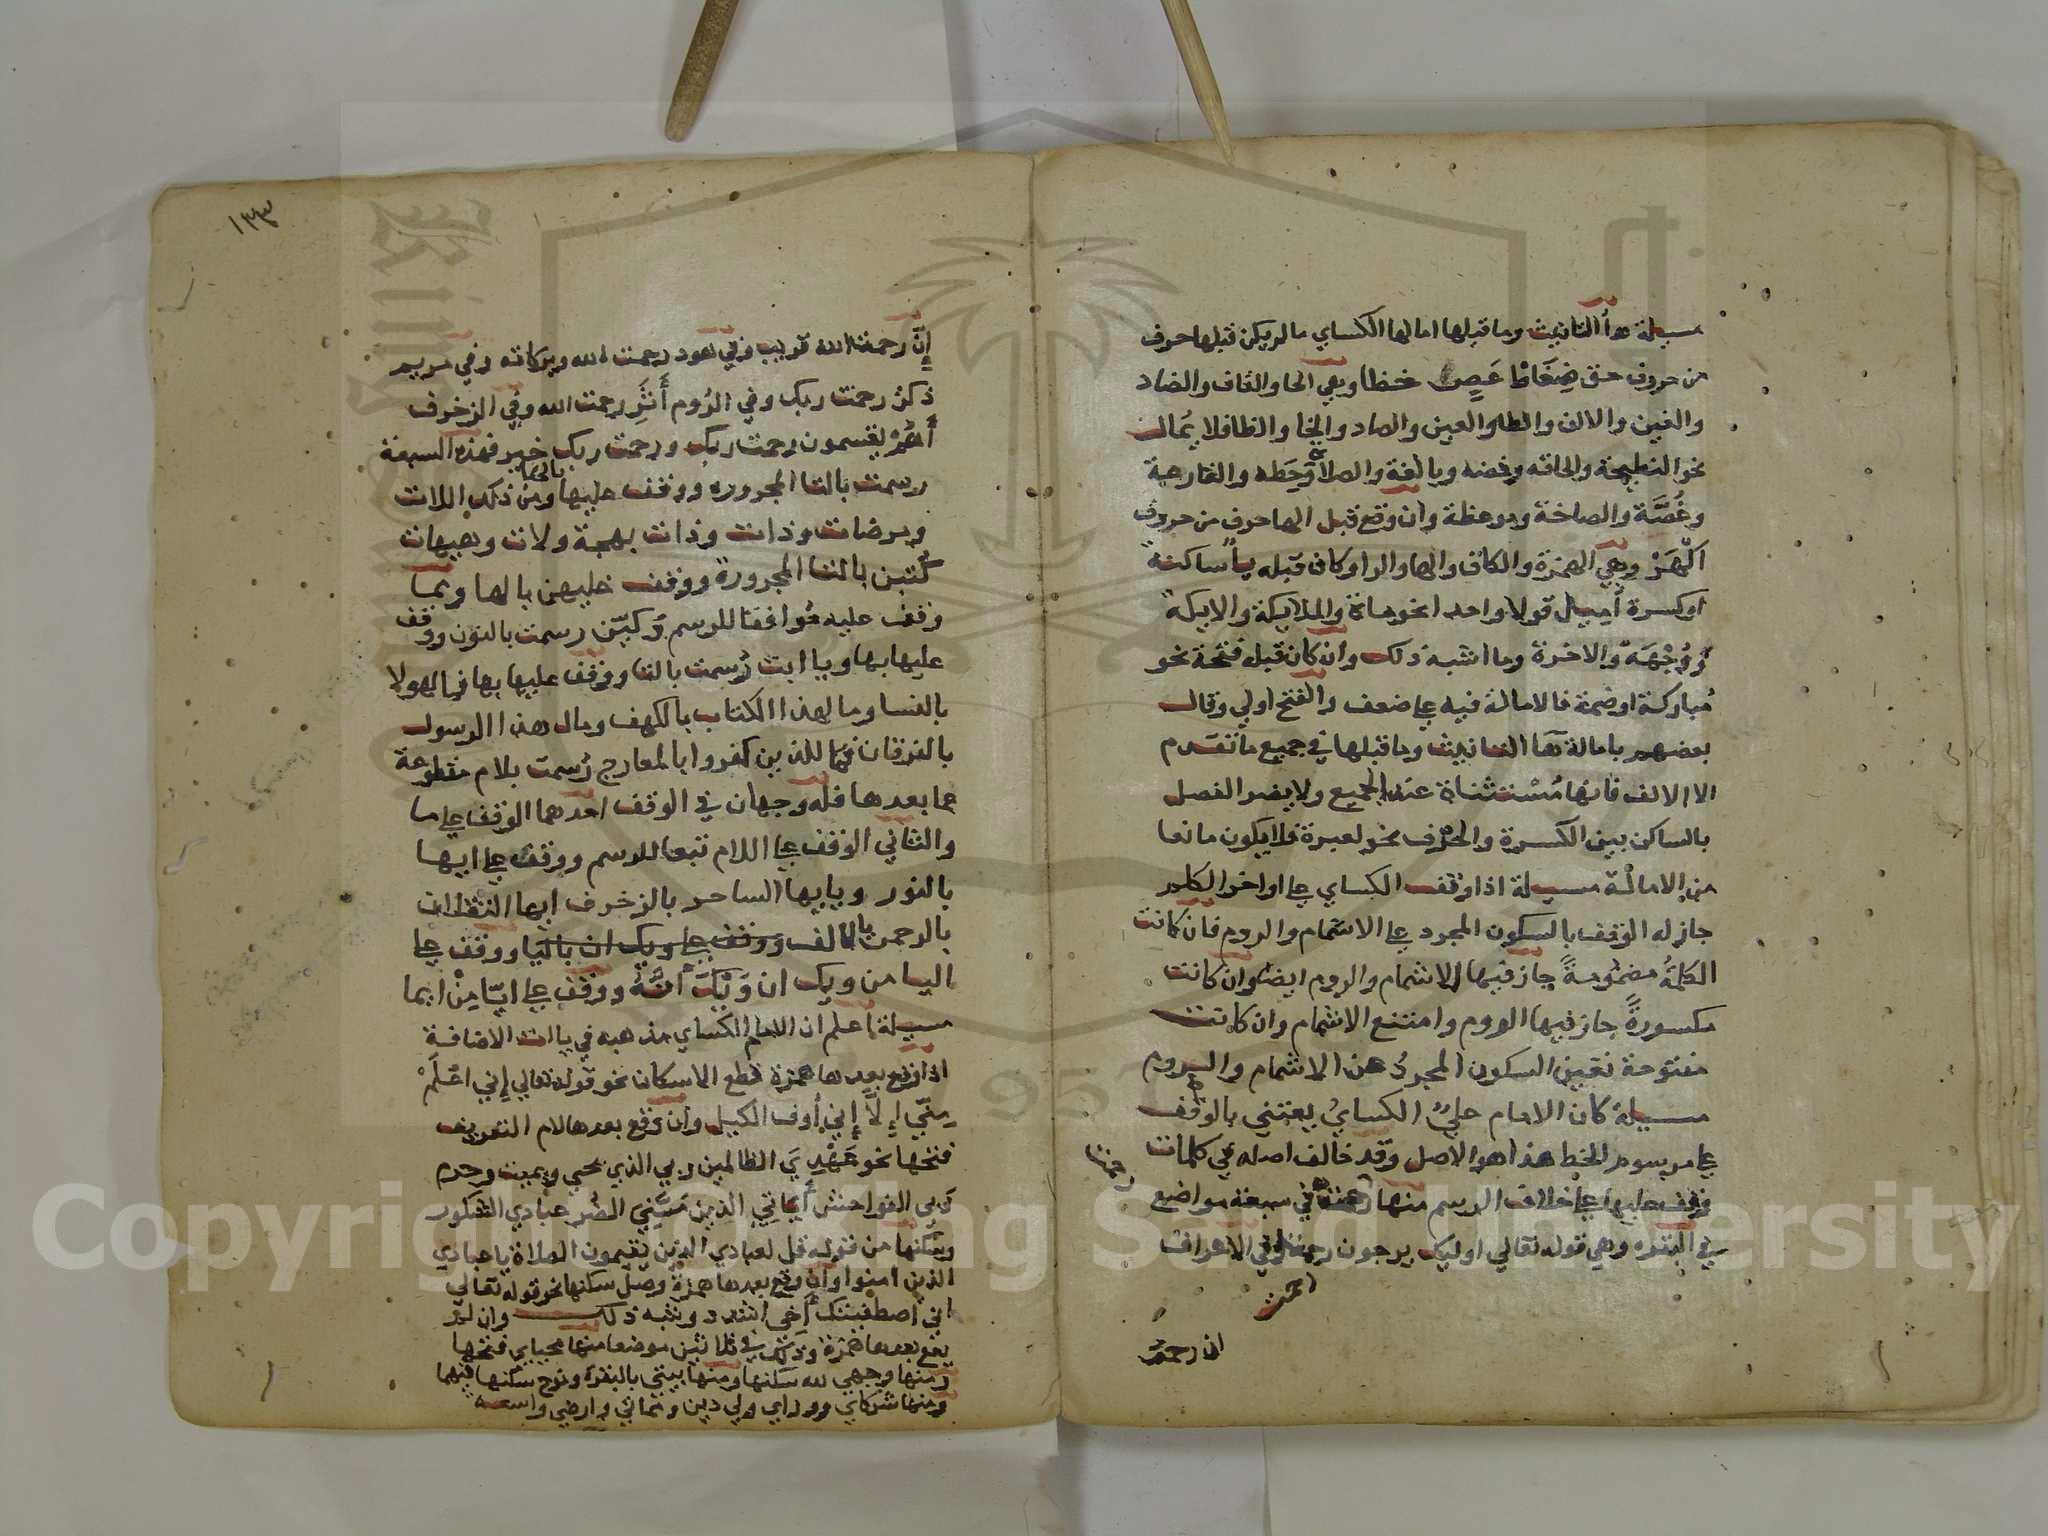 مسيلة هاُ التانيث وما قبلها امالها الكساي ما لم يكن قبلها حرف
من حروف حق ضِغَاطْ عَصٍ خظا وهي الحا والقاف والضاد
والغين والالف والطا والعين والصاد والخا والظا فلا يُمال
نحو النطيحة والحاقه وقبضه وبالغة والصلاة وحِطه والقارعة
وغُصَّة والصاخة وموعظة وان وقع قبل الها حرف من حروف
اَكْهَرْ وهي الهمزة والكاف والها والرا وكان قبله ياً ساكنة
او كسرة اُميل قولا واحدا نحو مائة والملايكة والايكة
ووُجْهَةٌ والاخرة وما اشبه ذلك وان كان قبله فتحة نحو
مُباركة او ضمة فالامالة فيه على ضعف والفتح اولي وقال
بعضهم بامالة هَا التانيث وما قبلها في جميع ما تقدم
الا الالف فانها مُسْتثناة عند الجميع ولا يضر الفصل
بالساكن بين الكسرة والحرف نحو لعبرة فلا يكون مانعا
من الامالة مسيلة اذا وقف الكساي على اواخر الكلم
جاز له الوقف بالسكون المجرد على الاشمام والروم فان كانت
الكلمةُ مضمومةً جاز فيها الاشمام والروم ايضا وان كانت
مكسورةً جاز فيها الروم وامتنع الاشمام وان كانت
مفتوحة تعين السكون المجردُ عن الاشمام والروم
مسيلة كان الامام عليٌ الكسايُ يعتني بالوقف
على مرسوم الخط هذا هو الاصل وقد خالف اصله في كلمات
فوقف عليها على خلاف الرسم منها رحمت في سبعة مواضع
في البقره وهي قوله تعالي اوليك يرجون رحمت وفي الاعراف
رحمت
ان رحمت
١٣٣
إِنَّ رحمت الله قريب وفي هود رحمت الله وبركاته وفي مريم
ذكرُ رحمت ربك وفي الرُوم أَثَرِ رحمت الله وفي الزخرف
أَهُمْ يقسمون رحمت ربك ورحمت ربك خير فهذه السبعة
رسمت بالتا المجروره ووقف عليها بالها ومن ذلك اللات
ومرضات وذات وذات بهجة ولات وهيهات
كُتبن بالتا المجرورة ووقف عليهن بالها ومما
وقف عليه مُوافقا للرسم وَكَايّن رسمت بالنون ووقف
عليها بها ويا ابت رُسمت بالتا ووقف عليها بها فمال هولا
بالنسا ومال هذا الكتاب بالكهف ومال هذا الرسول
بالفرقان فمال الذين كفروا بالمعارج رُسمت بلام مقطوعة
عما بعدها فله وجهان في الوقف احدهما الوقف على ما
والثاني الوقف على اللام تبعا للرسم ووقف على ايها
بالنور ويايها الساحر بالزخرف ايها الثقلان
بالرحمن بالالف ووقف على ويك ان باليا ووقف على
اليا من ويك ان وَيْكَ اَنَّهُ ووقف على ايّا مِنْ ايما
مسيلة اعلم ان الامام الكساي مذهبه في ياات الاضافة
اذا وقع بعدها همزة قطع الاسكان نحو قوله تعالي إِني اعْلَمْ
مِنّي إِلَّا إِني أُوف الكيل وان وقع بعدها لام التعريف
فتحها نحو عَهْدِيَ الظالمين ربي الذي يحيي ويميت وحرم
رَبي الفواحش أياتي الذين مَسَّنيَ الضُر عبادي الشكور
وسكنها من قوله قل لعبادي الذين يقيمون الصلاة يا عبادي
الذين امنوا وان وقع بعدها همزة وصل سكنها نحو قوله تعالي
اني اصطفيتك أخي اشدد وشبه ذلك وان لم
يقع بعدها همزة وذلك في ثلاثين موضعا منها محياي فتحها
ومنها وجهي لله سكنها ومنها بيتي بالبقرة ونوح سكنها فيهما
ومنها شركاي ووراي ولي دين ومماتي وارضي واسعة